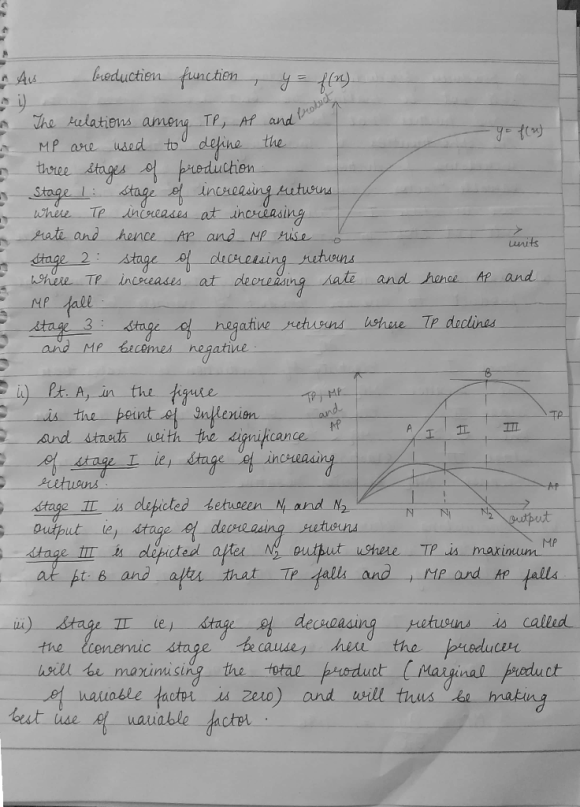 Ans Production function, y = f(x)
i)
The relations among TP, AP and
MP are used to define the
three stages of production
Stage 1: Stage of increasing returns
where TP increases at increasing
rate and hence AP and MP rise
Stage 2: stage of decreasing returns
where TP increases at decreasing rate and hence AP and
MP fall.
Stage 3: Stage of negative returns where TP declines
and MP becomes negative.
Product
y = f(x)
0
units
ii) Pt. A, in the figure
is the point of Inflexion
and starts with the significance
of stage I ie, Stage of increasing
returns.
Stage II is depicted between N₁ and N₂
output ie, stage of decreasing returns
Stage III is depicted after N₂ output where TP is maximum
at pt. B and after that TP falls and, MP and AP falls
TP, MP
and
AP
B
A I II III
TP
AP
N N₁ N₂ output
MP
iii) Stage II ie, stage of decreasing returns is called
the economic stage because, here the producer
will be maximising the total product (Marginal product
of variable factor is zero) and will thus be making
best use of variable factor.